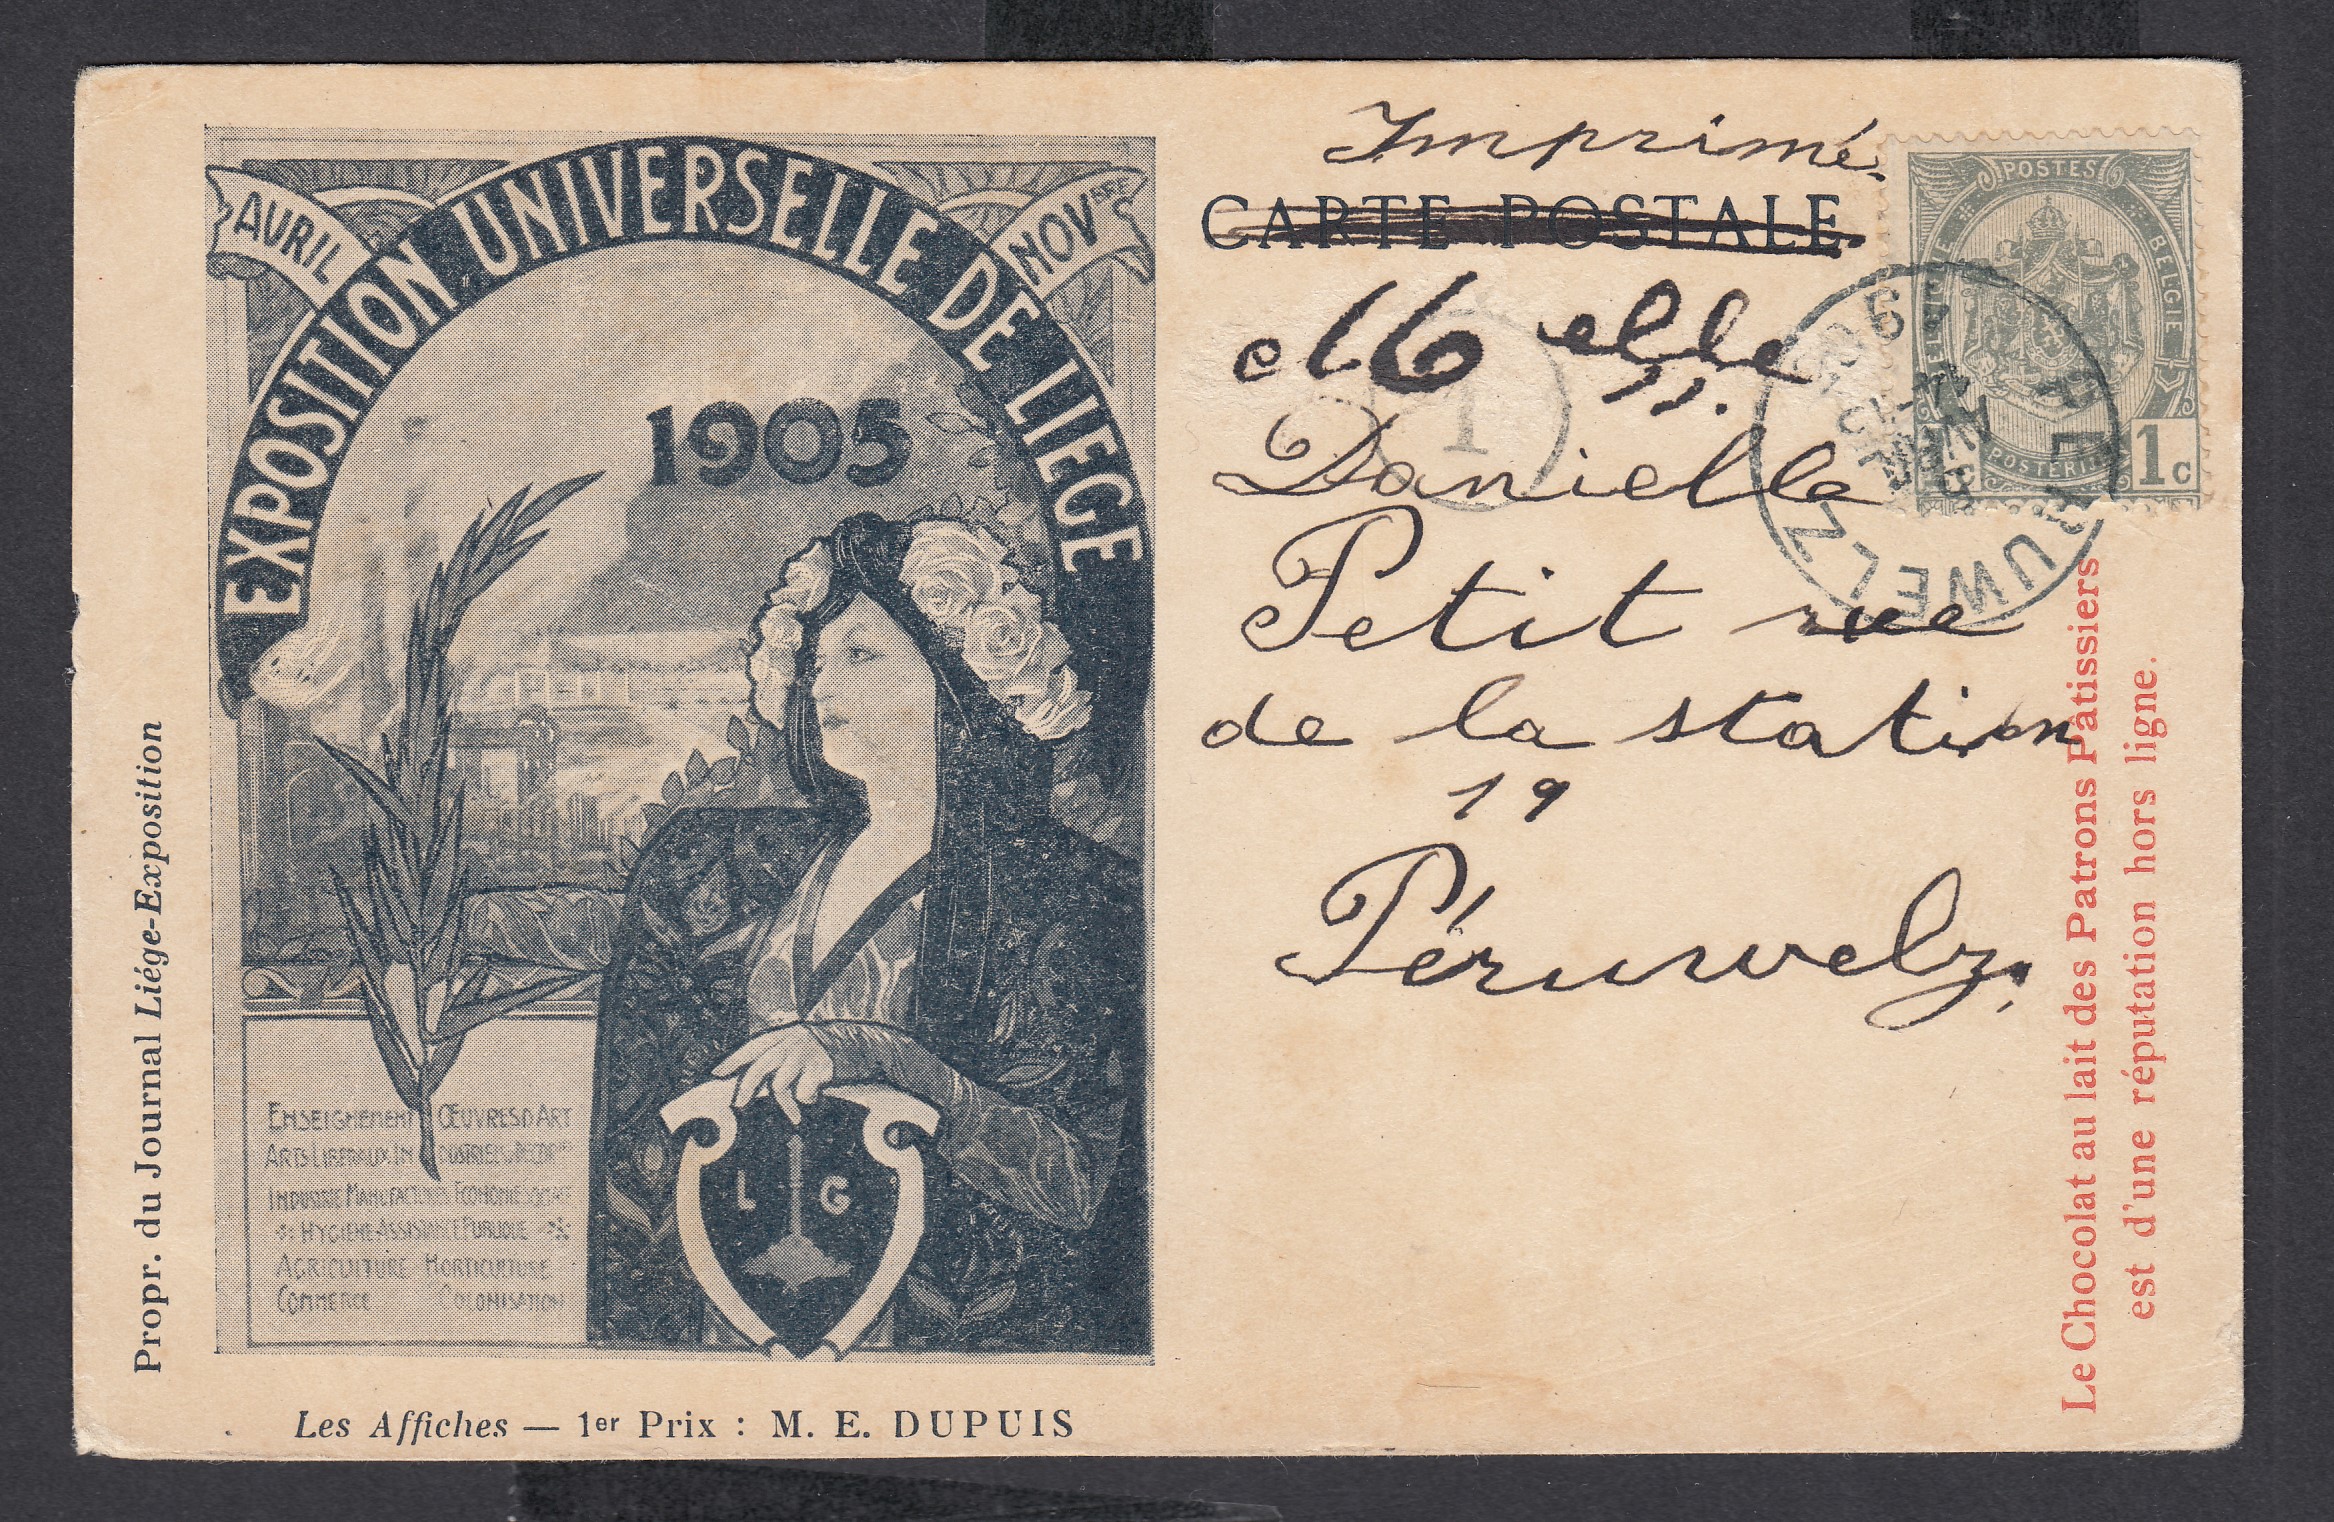 Propr. du Journal Liége-Exposition
AVRIL
NOVBRE
EXPOSITION UNIVERSELLE DE LIEGE
1905
ENSEIGNEMENT ŒUVRES D'ART
ARTS LIBERAUX. INDUSTRIELS. DECORFS
INDUSTRIE MANUFACTURES ECONOMIE SOCIALE
HYGIÈNE ASSISTANCE PUBLIQUE
AGRICULTURE HORTICULTURE
COMMERCE COLONISATION
L G
Les Affiches — 1er Prix : M. E. DUPUIS
Imprimé
CARTE POSTALE
Melle
Danielle
Petit rue
de la station
19
Péruwelz
1
POSTES
BELGIE
POSTERIJEN
1c
PERUWELZ
Le Chocolat au lait des Patrons Pâtissiers
est d'une réputation hors ligne.